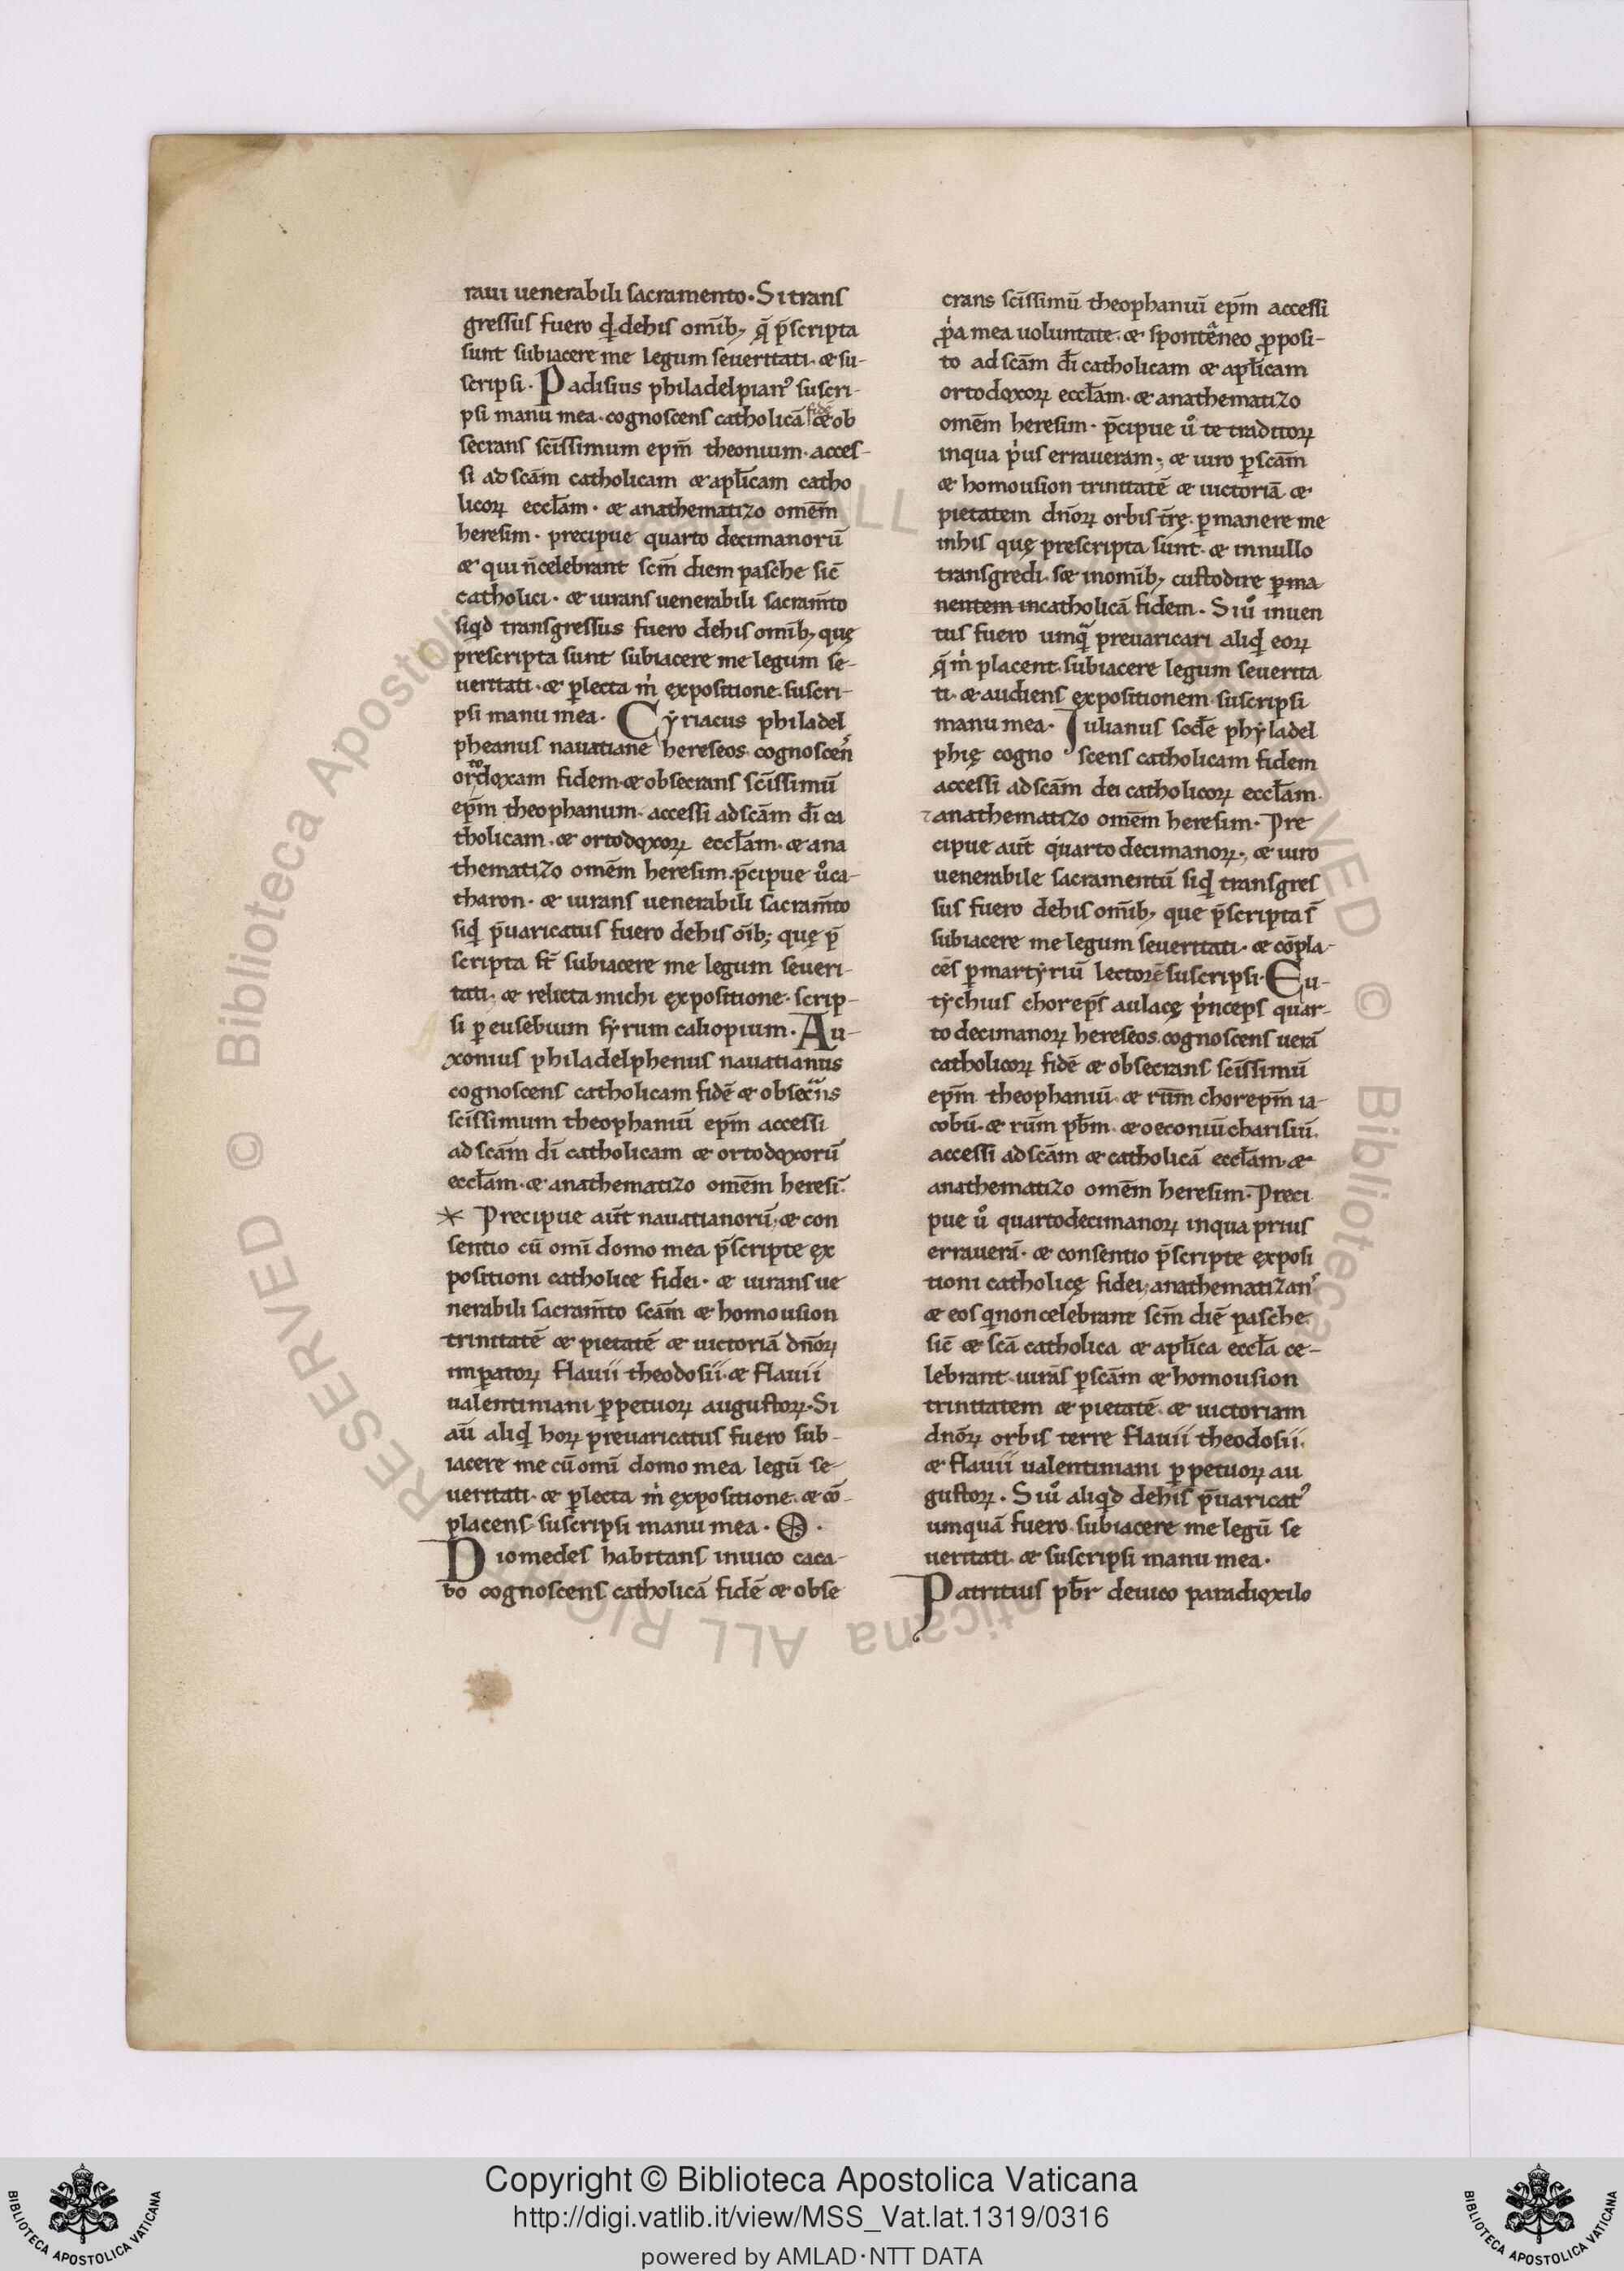 raui uenerabili sacramento. Si trans
gressus fuero qd́ dehis omīb; q̄ p̄scripta
sunt subiacere me legum seueritati. & su-
scripsi. Padisius philadelpian⁹ suscri-
psi manu mea. cognoscens catholicā fidē & ob
secrans scīssimum epm̄ theonium. acces-
si ad scām catholicam & apl̄icam catho
licoꝝ eccl̄am. & anathematizo omēm
heresim. precipue quarto decimanorū
& qui n̄ celebrant scm̄ diem pasche sic̄
catholici. & iurans uenerabili sacram̄to
siqd transgressus fuero dehis omīb; quę
prescripta sunt subiacere me legum se-
ueritati. & ꝑlecta m̓ ęxpositione. suscri-
psi manu mea. Cẏriacus philadel
pheanus nauatiane hereseos cognoscens
ortodoxam fidem. & obsecrans scīssimū
epm̄ theophanum. accessi ad scām dī ca
tholicam. & ortodoxoꝝ eccl̄am. & ana
thematizo omēm heresim. p̄cipue u̓o ca-
tharon. & iurans uenerabili sacram̄to
siqd́ p̄uaricatus fuero dehis oīb; quę p̄
scripta st̄ subiacere me legum seueri-
tati; & relicta michi ęxpositione. scrip-
si ꝑ eusebium sẏrum caliopium. Au-
xonius philadelphenus nauatianus
cognoscens catholicam fidē & obsecrans
scīssimum theophaniū epm̄ accessi
ad scām dī catholicam & ortodoxorū
eccl̄am. & anathematizo omēm heresī.
* Precipue aūt nauatianorū; & con
sentio cū omī domo mea p̄scripte ęx
positioni catholice fidei. & iurans ue
nerabili sacram̄to scām & homousion
trinitatē & pietatē & uictoriā dn̄oꝝ
imꝑatoꝝ flauii theodosii. & flauii
ualentiniani ꝑpetuoꝝ augustoꝝ. Si
aū aliqd́ hoꝝ preuaricatus fuero sub-
iacere me cū omī domo mea legū se-
ueritati. & ꝑlecta m̓ ęxpositione. & cō-
placens suscripsi manu mea.
Diomedes habitans inuico caca-
bo cognoscens catholicā fidē & obse
crans scīssimū theophaniū epm̄ accessi
ꝓp̓a mea uoluntate. & spontaneo ꝓposi-
to ad scām dī catholicam & apl̄icam
ortodoxoꝝ eccl̄am. & anathematizo
omēm heresim. p̄cipue u̓o te traditoꝝ
inqua p̓us erraueram; & iuro ꝑ scām
& homousion trinitatē & uictoriā &
pietatem dn̄oꝝ orbis tr̄ę. ꝑmanere me
inhis quę prescripta sunt. & innullo
transgredi. s& inomīb; custodire ꝑma
nentem incatholicā fidem. Siu̓o inuen
tus fuero umquā preuaricari aliqd́ eoꝝ
q̄ m̓ placent. subiacere legum seuerita
ti. & audiens ęxpositionem suscripsi
manu mea. Iulianus scd̄e phẏladel
phię cognoscens catholicam fidem
accessi ad scām dei catholicoꝝ eccl̄am.
⁊ anathematizo omēm heresim. Pre
cipue aūt quarto decimanoꝝ; & iuro
uenerabile sacramentū siqd́ transgres
sus fuero dehis omīb; que p̄scripta s̄
subiacere me legum seueritati. & cōpla-
cēs ꝑ martẏriū lectorē suscripsi. Eu-
tẏchius chorepīs aulacę p̓nceps quar-
to decimanoꝝ hereseos. cognoscens uerā
catholicoꝝ fidē & obsecrans scīssimū
epm̄ theophaniū. & rūm chorepm̄ ia-
cobū. & rūm pb̄m. & oeconiū charisiū.
accessi ad scām & catholicā eccl̄am. &
anathematizo omēm heresim. Preci
pue u̓o quartodecimanoꝝ inqua prius
errauerā. & consentio p̄scripte ęxposi
tioni catholicę fidei; anathematizans
& eos q̓ non celebrant scm̄ diē pasche.
sic̄ & scā catholica & apl̄ica eccl̄a ce-
lebrant. iurās ꝑ scām & homousion
trinitatem & pietatē. & uictoriam
dn̄oꝝ orbis terre flauii theodosii.
& flauii ualentiniani ꝑpetuoꝝ au
gustoꝝ. Siu̓o aliqd dehis p̄uaricat⁹
umquā fuero. subiacere me legū se
ueritati. & suscripsi manu mea.
Patritius pb̄r deuico paradioxilo
© Biblioteca Apostolica Vaticana ALL RIGHTS RESERVED
Copyright © Biblioteca Apostolica Vaticana
http://digi.vatlib.it/view/MSS_Vat.lat.1319/0316
powered by AMLAD·NTT DATA
BIBLIOTECA APOSTOLICA VATICANA
BIBLIOTECA APOSTOLICA VATICANA